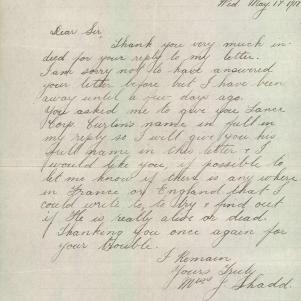 Wed. May 17
Dear Sir,
Thank you very much in-
deed for your reply to my letter.
I am sorry not to have answered
your letter before but I have been
away until a few days ago.
You asked me to give you Lance
Corp Curtin's name in full in
my reply so I will give you his
full name in this letter & I
would like you if possible to
let me know if there is any where
in France or England that I
could write to, to try & find out
if He is really alive or dead.
Thanking you once again for
your trouble.
I Remain
Yours Truly
J Shadd.